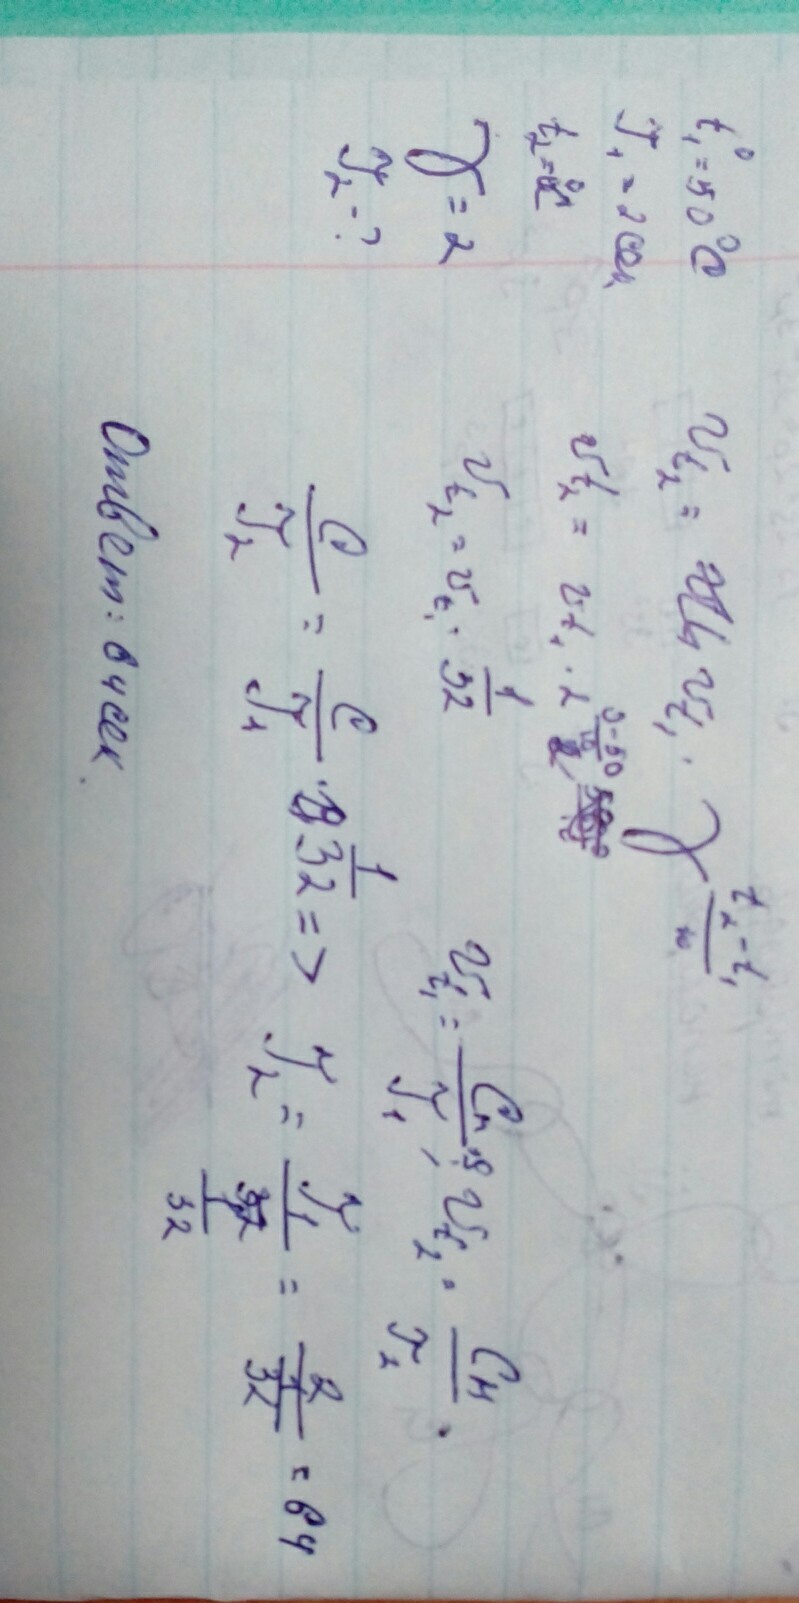 t₁° = 50°C
τ₁ = 2 сек,
t₂ = 0°
γ = 2
τ₂ - ?
v_t₂ = v_t₁ · γ^((t₂ - t₁)/10)
v_t₂ = v_t₁ · 2^((0-50)/10)
v_t₂ = v_t₁ · 1/32
v_t₁ = Cм/τ₁, v_t₂ = Cм/τ₂.
C/τ₂ = C/τ₁ · 1/32 => τ₂ = τ₁/(1/32) = 2/(1/32) = 64
Ответ: 64 сек.